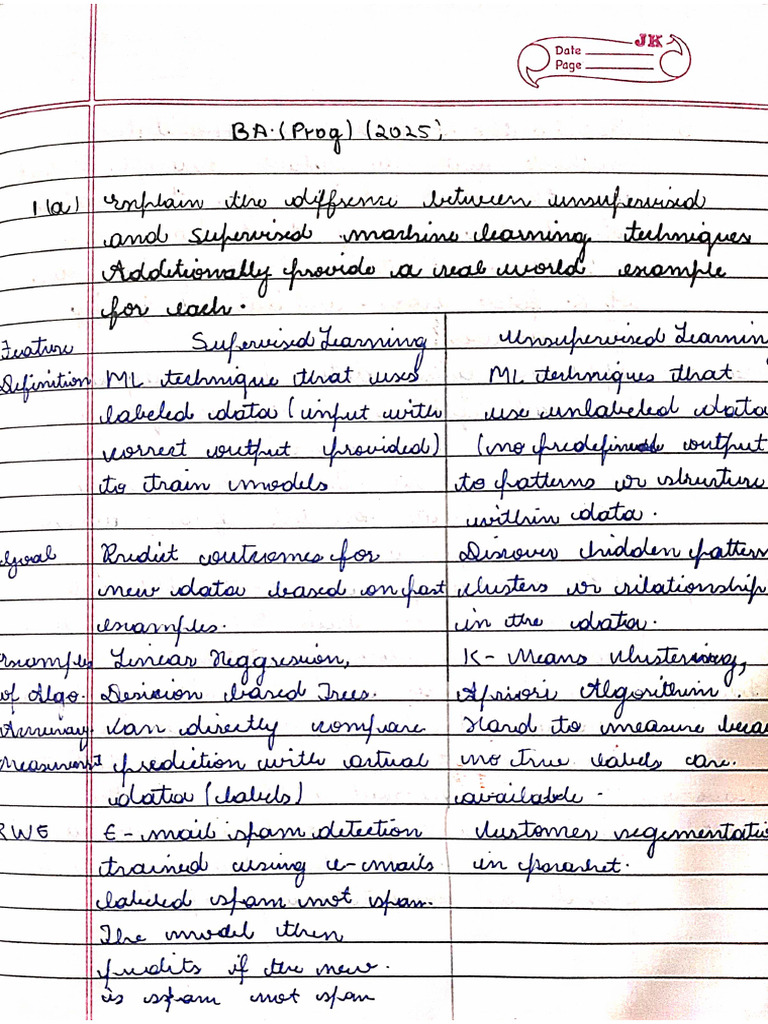 JK
Date
Page
BA.(Prog) (2025)
1(a) Explain the diffrence between unsupervised
and supervised machine learning techniques
Additionally provide a real world example
for each.
Feature Supervised Learning Unsupervised Learnin
Definition ML technique that uses ML techniques that
labeled data (input with use unlabeled data
correct output provided) (no predefined output
to train models to patterns or structure
within data.
Goal Predict outcomes for Discover hidden pattern
new data based on past clusters or relationship
examples. in the data.
Examples Linear Reggression, K-Means clustering,
of Algo. Decision based Trees. Apriori Algorithm.
Accuracy Can directly compare Hard to measure becau
Measurement prediction with actual no true labels are.
data (labels) available.
RWE E-mail spam detection Customer segmentatio
trained using e-mails in
labeled spam not spam.
The model then
predits if the new.
is spam not spam